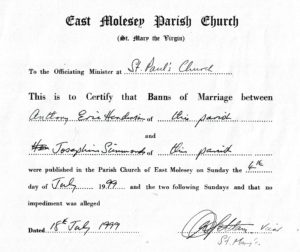 East Molesey Parish Church
(St. Mary the Virgin)
To the Officiating Minister at St. Paul's Church
This is to Certify that Banns of Marriage between
Anthony Eric Henderson of this parish
and
Josephine Simmonds of this parish
were published in the Parish Church of East Molesey on Sunday the 4th
day of July 1999 and the two following Sundays and that no
impediment was alleged
Dated 18th July 1999 Vicar
St. Mary's